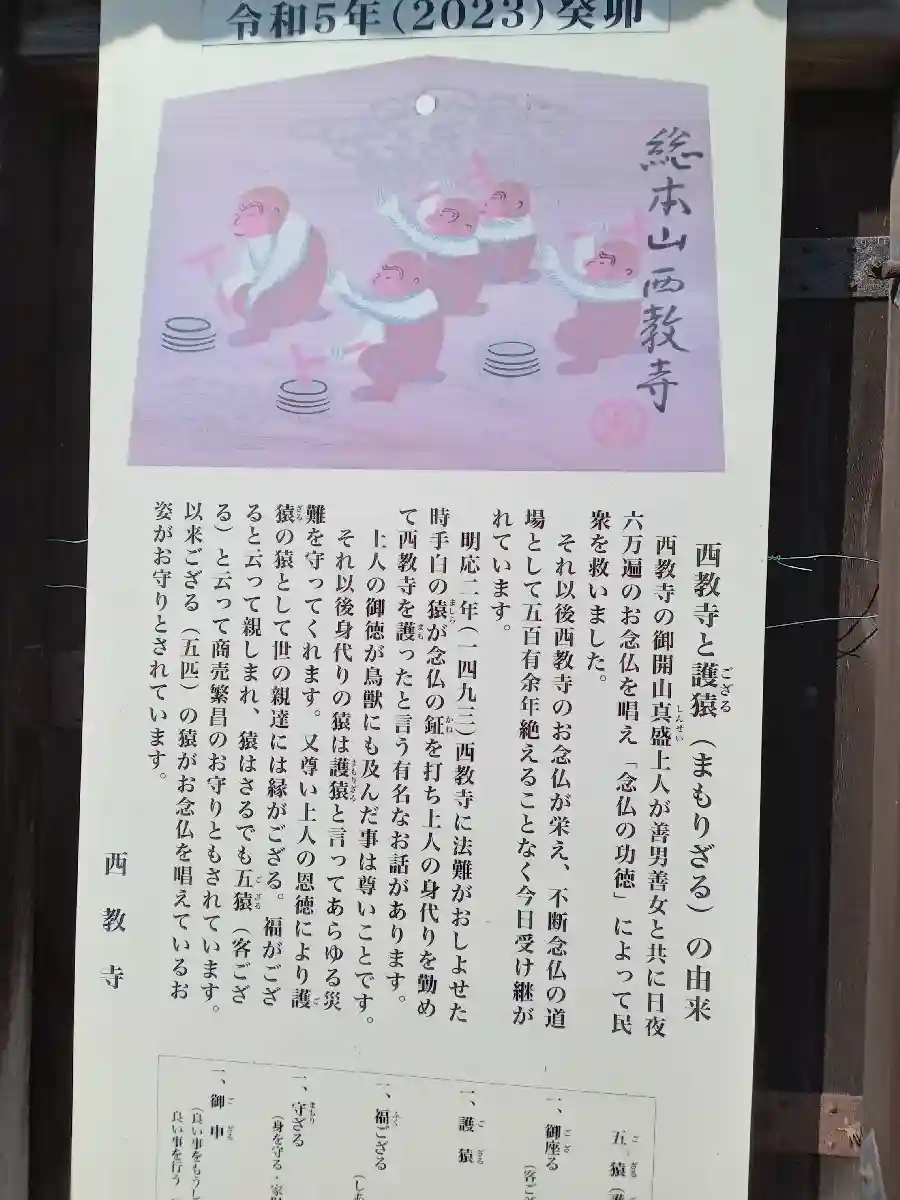 令和5年(2023)癸卯
総本山西教寺
ござる
西教寺と護猿（まもりざる）の由来
しんせい
西教寺の御開山真盛上人が善男善女と共に日夜
六万遍のお念仏を唱え「念仏の功徳」によって民
衆を救いました。
それ以後西教寺のお念仏が栄え、不断念仏の道
場として五百有余年絶えることなく今日受け継が
れています。
明応二年(一四九三)西教寺に法難がおしよせた
ましら かね
時手白の猿が念仏の鉦を打ち上人の身代りを勤め
まも
て西教寺を護ったと言う有名なお話があります。
上人の御徳が鳥獣にも及んだ事は尊いことです。
まもりざる
それ以後身代りの猿は護猿と言ってあらゆる災
ご
難を守ってくれます。又尊い上人の恩徳により護
ざる
猿の猿として世の親達には縁がござる。福がござ
ござる
ると云って親しまれ、猿はさるでも五猿（客ござ
る）と云って商売繁昌のお守りともされています。
以来ござる（五匹）の猿がお念仏を唱えているお
姿がお守りとされています。
西教寺
ござる
五猿
ござ
一、御座る
（客ご
ござる
一、護猿
ふく
一、福ござる
（しあ
まもり
一、守ざる
（身を守る・家
ござる
一、御申
（良い事をもうし
良い事を行う